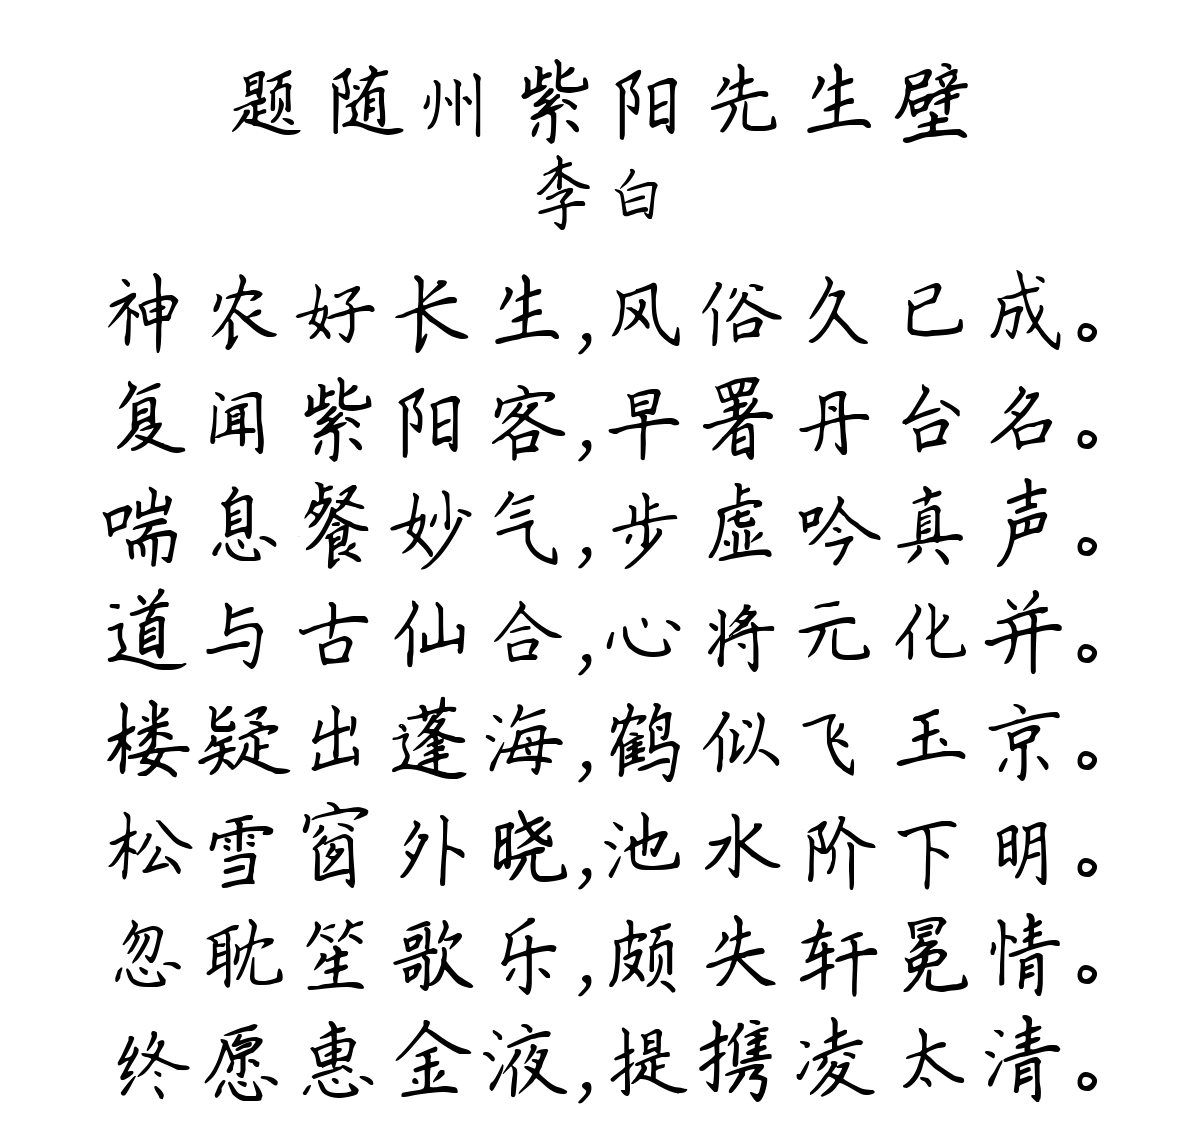 题随州紫阳先生壁
李白
神农好长生,风俗久已成。
复闻紫阳客,早署丹台名。
喘息餐妙气,步虚吟真声。
道与古仙合,心将元化并。
楼疑出蓬海,鹤似飞玉京。
松雪窗外晓,池水阶下明。
忽耽笙歌乐,颇失轩冕情。
终愿惠金液,提携凌太清。